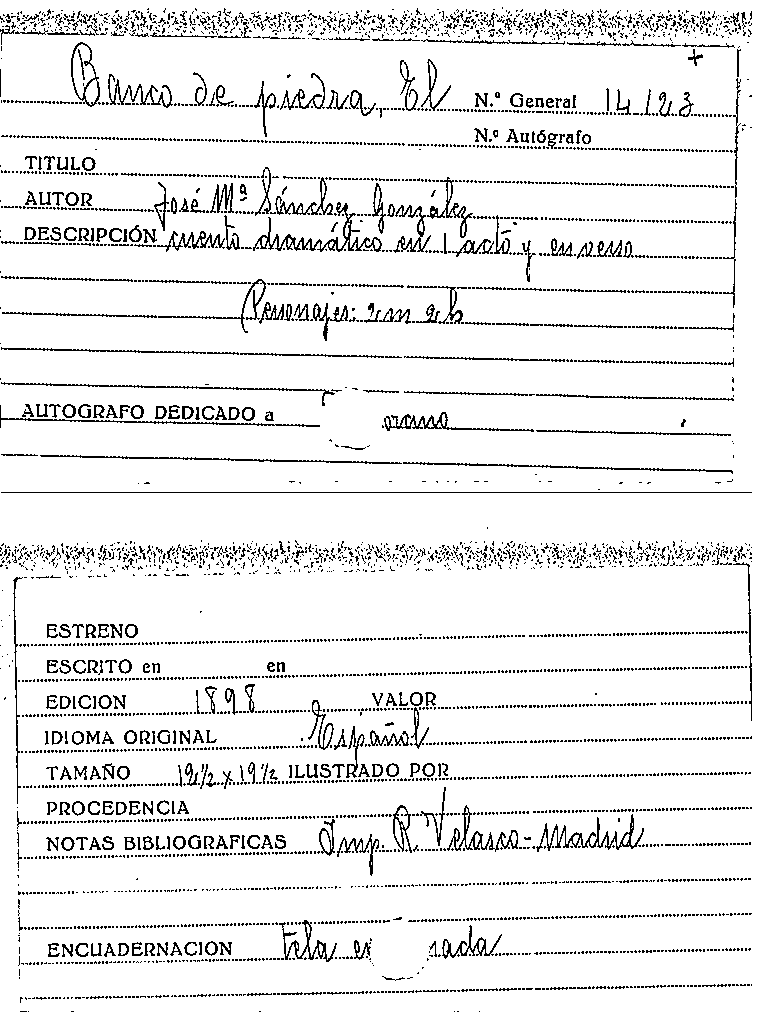 +
Banco de piedra, El N.º General 14123
N.º Autógrafo
TITULO
AUTOR José Mª Sánchez González
DESCRIPCIÓN cuento dramático en 1 acto y en verso
(Personajes: 2 m 2 h
AUTOGRAFO DEDICADO a
ESTRENO
ESCRITO en en
EDICION 1898 VALOR
IDIOMA ORIGINAL Español
TAMAÑO 12½ x 19½ ILUSTRADO POR
PROCEDENCIA
NOTAS BIBLIOGRAFICAS Imp. R. Velasco - Madrid
ENCUADERNACION tela